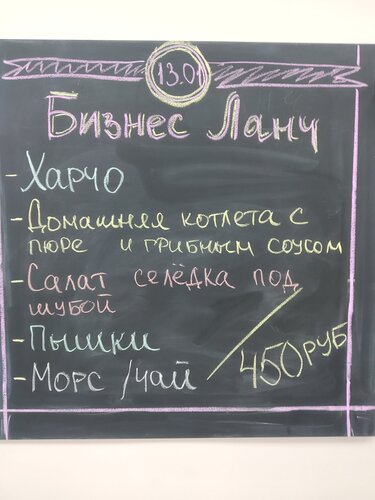 13.01
Бизнес Ланч
- Харчо
- Домашняя котлета с
пюре и грибным соусом
- Салат селёдка под
шубой
- Пышки
- Морс / чай
450 руб